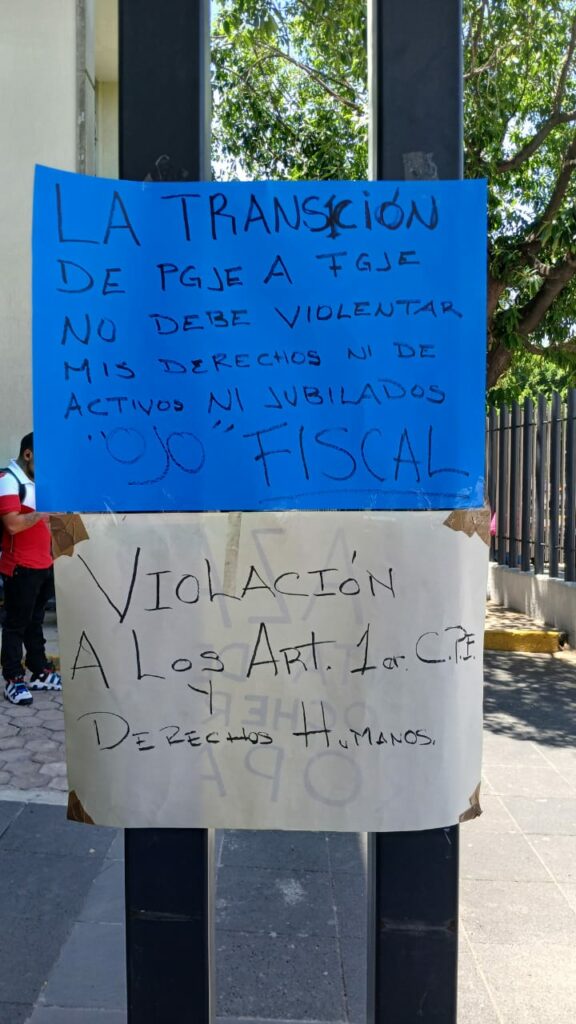 LA TRANSICIÓN
DE PGJE A FGJE
NO DEBE VIOLENTAR
MIS DERECHOS NI DE
ACTIVOS NI JUBILADOS
"OJO" FISCAL
VIOLACIÓN
A LOS ART. 1er. C.P.E.
Y
DERECHOS HUMANOS.